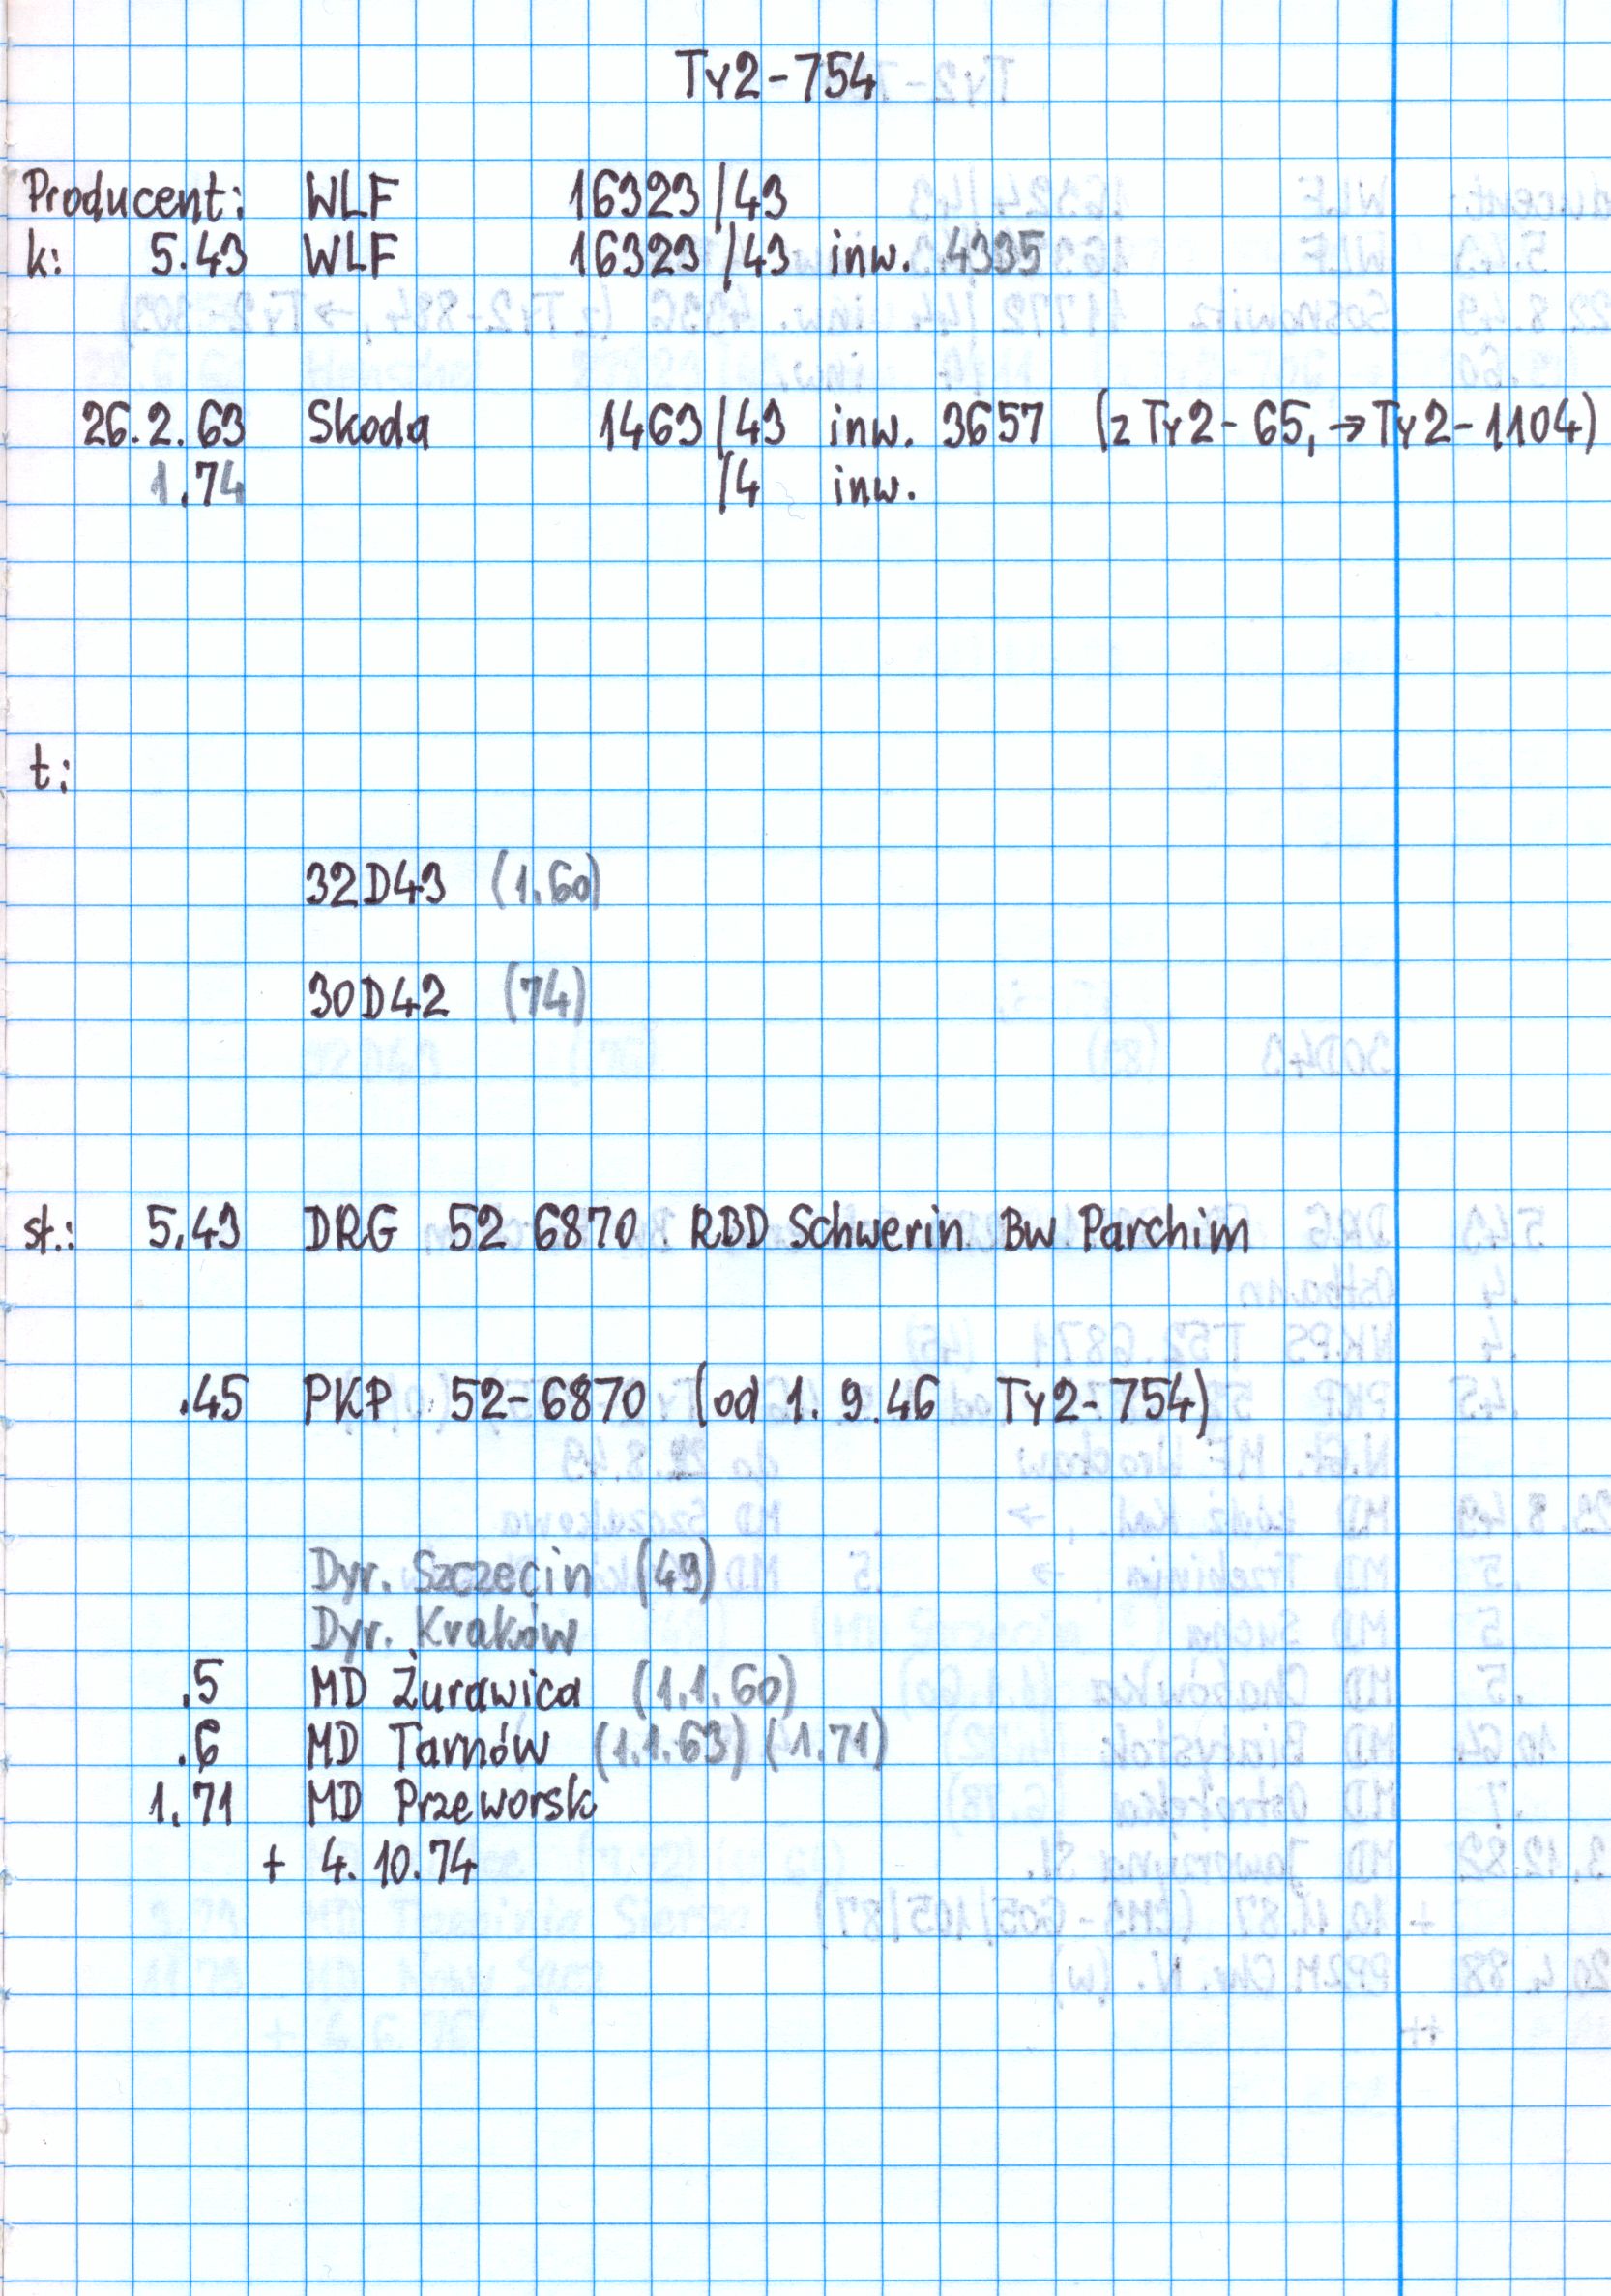 Ty2-754
Producent: WLF 16323/43
k: 5.43 WLF 16323/43 inw. 4335
26.2.63 Skoda 1463/43 inw. 3657 (z Ty2-65, →Ty2-1104)
1.74 /4 inw.
t:
32D43 (1.60)
30D42 (74)
st.: 5.43 DRG 52 6870 RBD Schwerin Bw Parchim
.45 PKP 52-6870 (od 1.9.46 Ty2-754)
Dyr. Szczecin (49)
Dyr. Kraków
.5 MD Żurawica (1.1.60)
.6 MD Tarnów (1.1.63) (1.71)
1.71 MD Przeworsk
+ 4.10.74